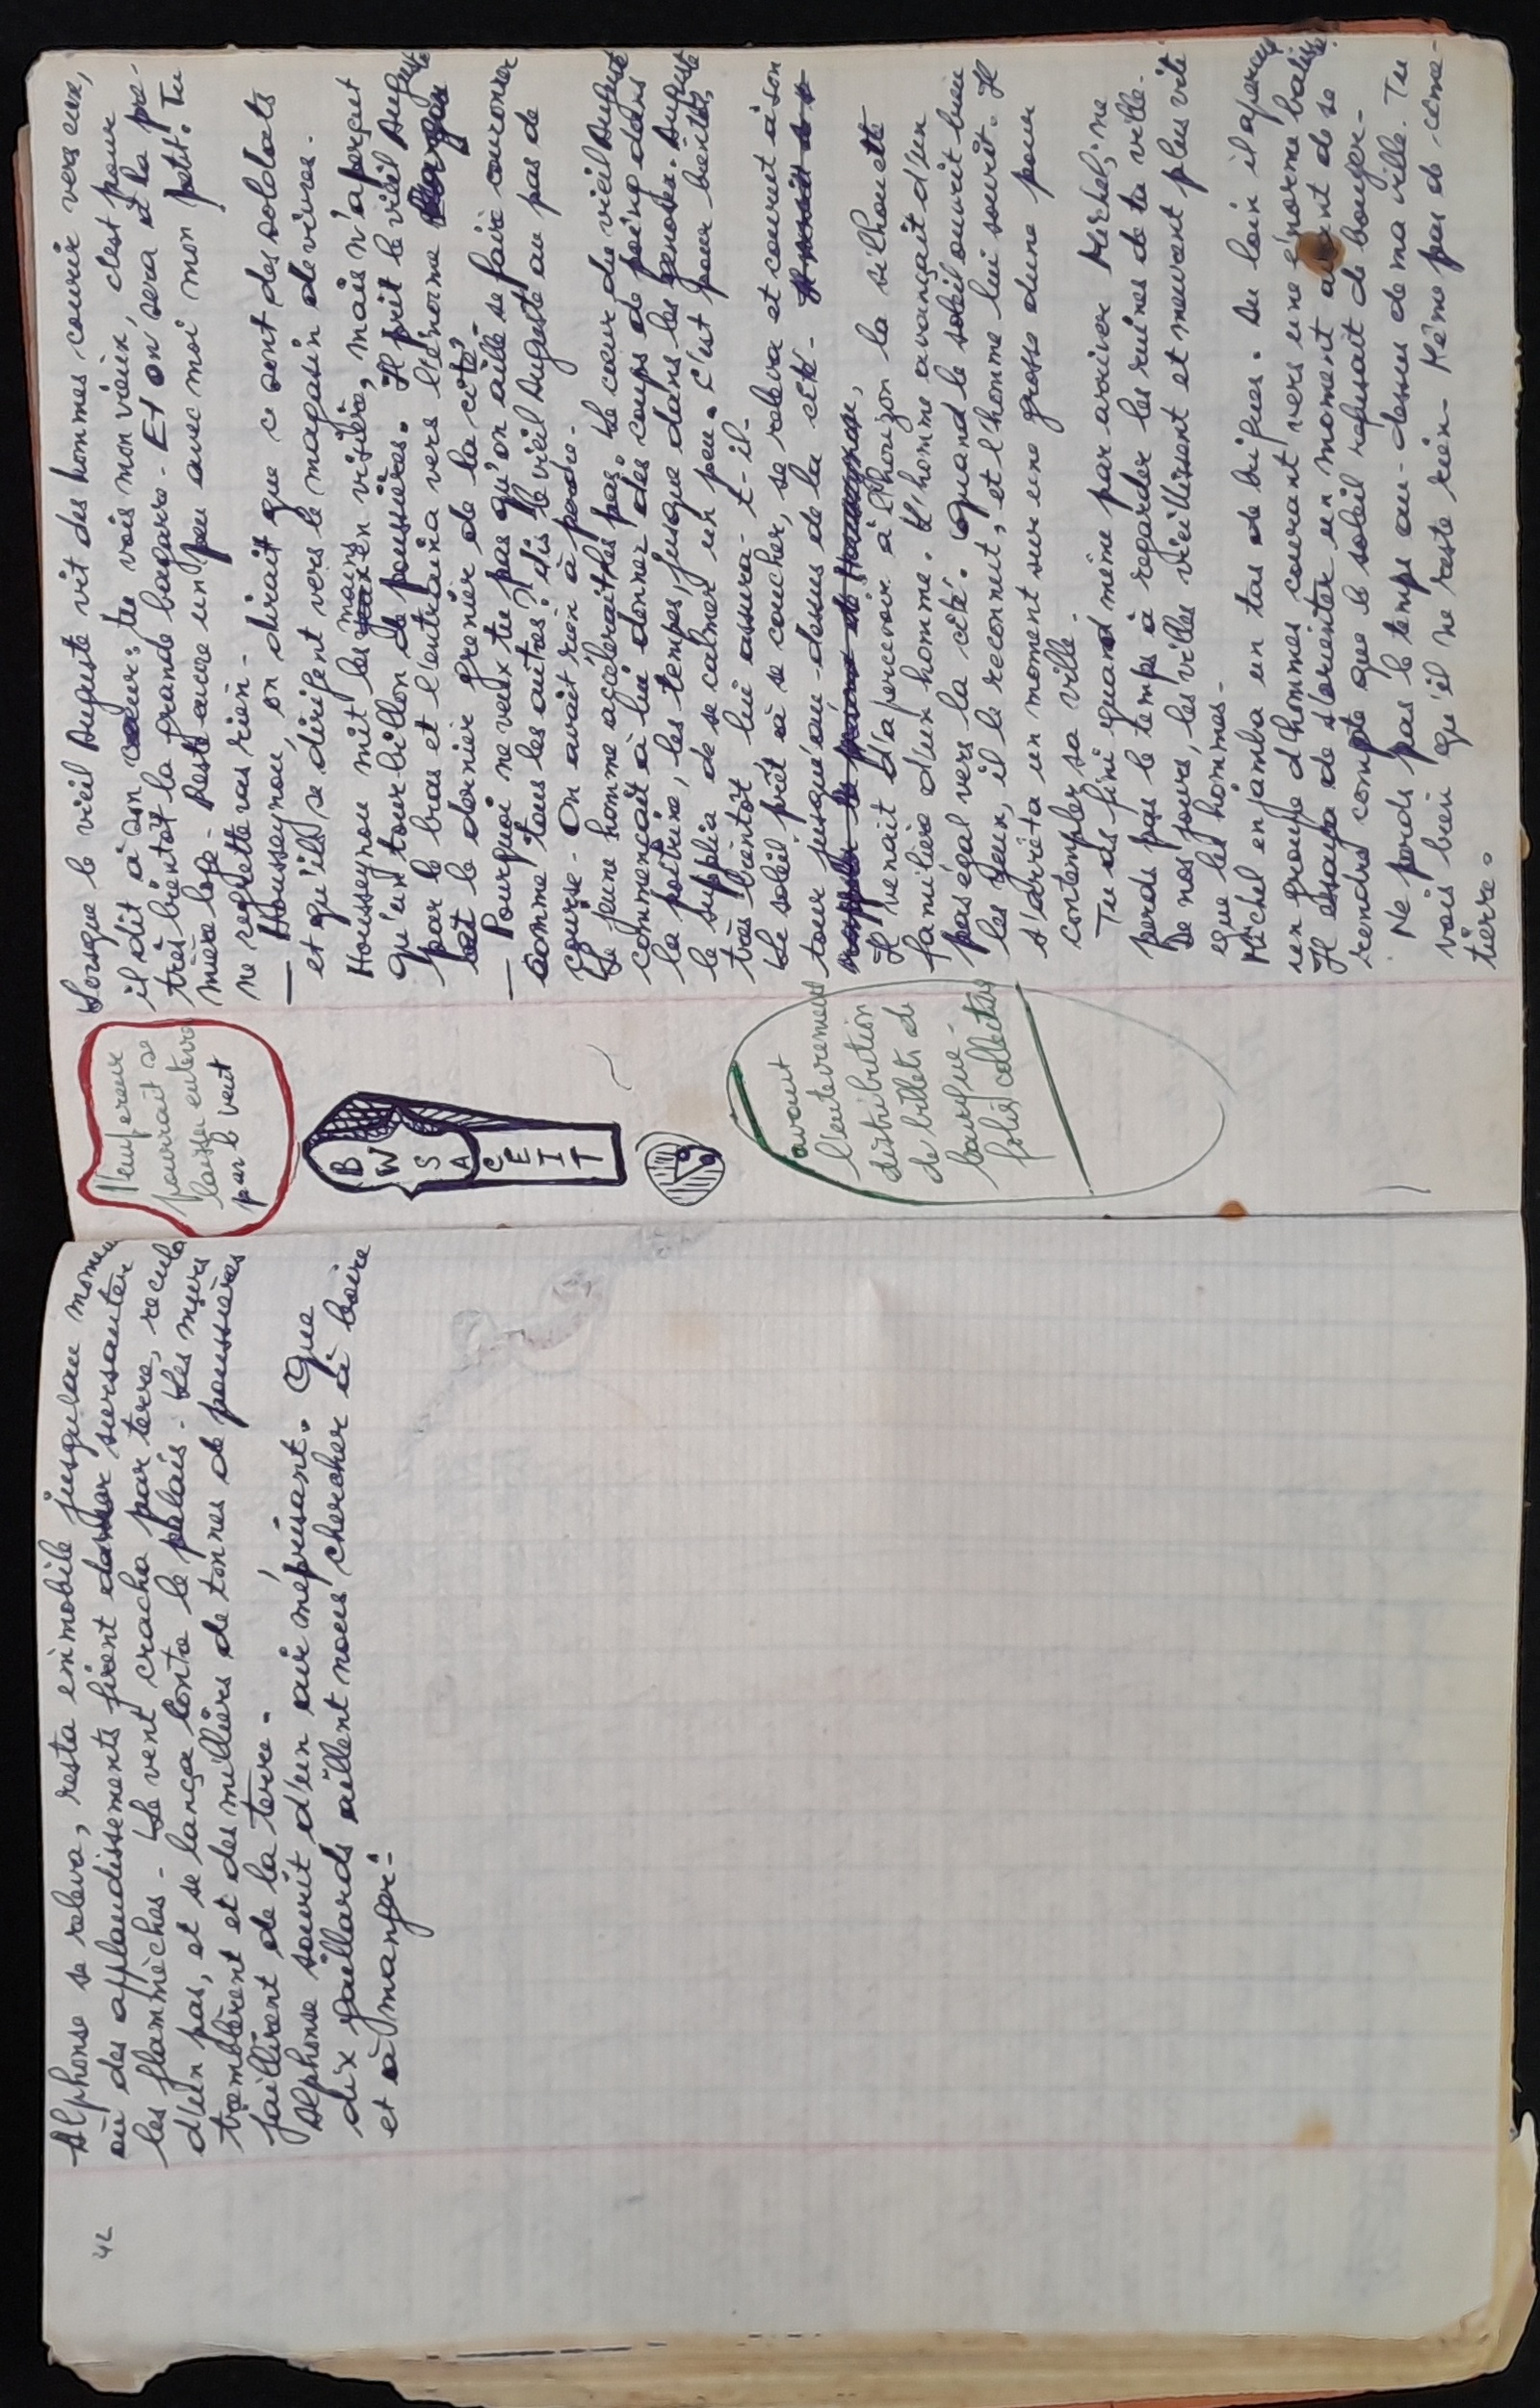 42
Alphonse se releva, resta immobile jusqu'au mome
où des applaudissements firent sursauter
les flammèches - Le vent cracha par terre, recula
d'un pas, et se lança contre le palais - Les murs
tremblèrent et des milliers de tonnes de poussières
jaillirent de la terre.
Alphonse sourit d'un air méprisant. Que
dix gaillards aillent nous chercher à boire
et à manger.
l'empereur
pourrait se
laisser enterrer
par le vent
B
W
S
A
C
E
I
T
avant
l'enterrement
distribution
de billets de
banque -
folie collective
Lorsque le vieil Auguste vit des hommes courir vers eux,
il dit à son cœur: tu vois mon vieux, c'est pour
très bientôt la grande bagarre - Et on sera à la pre-
mière loge - Reste encore un peu avec moi mon petit. Tu
ne regretteras rien -
— Housseynou, on dirait que ce sont des soldats
et qu'ils se dirigent vers le magasin de vivres.
Housseynou mit les mains en visière, mais n'aperçut
qu'un tourbillon de poussières. Il prit le vieil Auguste
par le bras et l'entraîna vers l'énorme
et le dernier grenier de la cité.
— Pourquoi ne veux tu pas qu'on aille se faire couronner
comme tous les autres? dis le vieil Auguste au pas de
course - On avait rien à perdre -
Le jeune homme accélerait les pas. Le cœur du vieil Auguste
commençait à lui donner des coups de poing dans
la poitrine, les tempes, jusque dans les genoux. Auguste
le supplia de se calmer un peu. C'est pour bientôt,
très bientôt, lui assura-t-il -
Le soleil prêt à se coucher, se releva et courut à son
tour jusqu'au-dessus de la cité -
Il venait d'apercevoir à l'horizon la silhouette
familière d'un homme. L'homme avançait d'un
pas égal vers la cité. Quand le soleil ouvrit bien
les yeux, il le reconnut, et l'homme lui sourit. Il
s'arrêta un moment sur une grosse dune pour
contempler sa ville -
Tu as fini quand même par arriver Michel; ne
perds pas le temps à regarder les ruines de ta ville.
De nos jours, les villes vieillissent et meurent plus vite
que les hommes -
Michel enjamba un tas de briques. Au loin il aperçut
un groupe d'hommes courant vers une énorme balise
Il essaya de s'orienter un moment avant de se
rendre compte que le soleil refusait de bouger -
Ne perds pas le temps au-dessus de ma ville. Tu
vois bien qu'il ne reste rien - Même pas de cime-
tière.